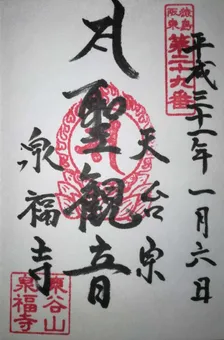 平成三十一年一月六日
猿島
阪東
第二十九番
聖観音
天台宗
泉福寺
東谷山
泉福寺